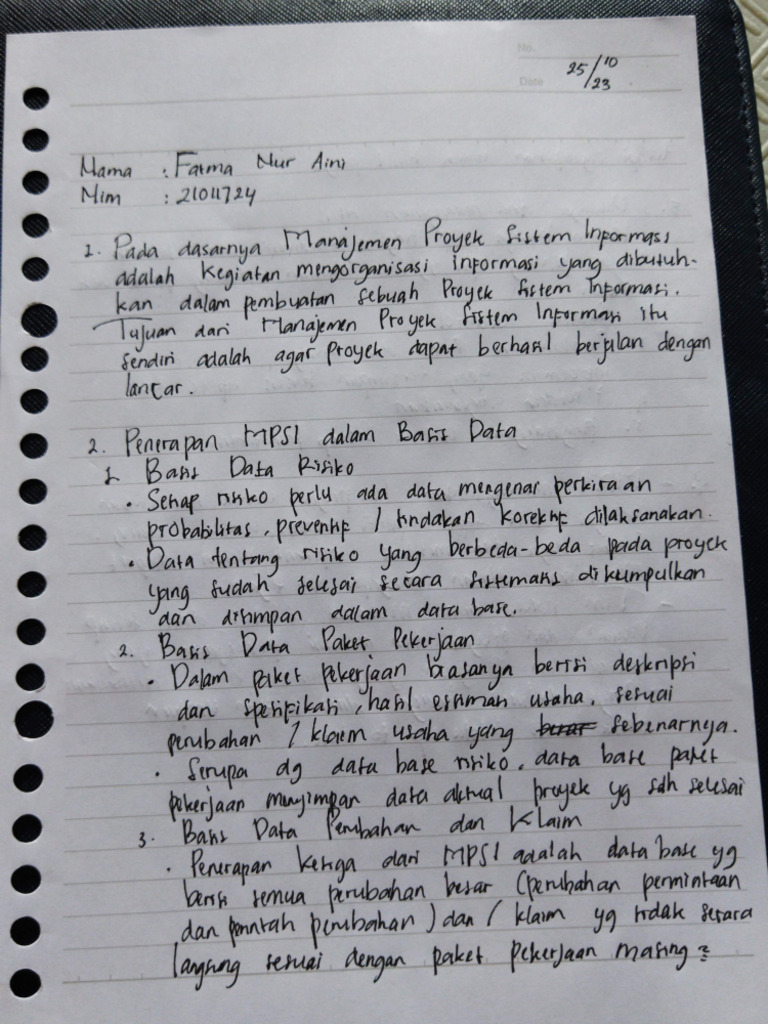 No.
Date 25/10/23
Nama : Fatma Nur Aini
Nim : 21011724
1. Pada dasarnya Manajemen Proyek Sistem Informasi
adalah kegiatan mengorganisasi informasi yang dibutuh-
kan dalam pembuatan sebuah Proyek Sistem Informasi.
Tujuan dari Manajemen Proyek Sistem Informasi itu
sendiri adalah agar proyek dapat berhasil berjalan dengan
lancar.
2. Penerapan MPSI dalam Basis Data
1. Basis Data Risiko
• Setiap risiko perlu ada data mengenai perkiraan
probabilitas, preventif / tindakan korektif dilaksanakan.
• Data tentang risiko yang berbeda-beda pada proyek
yang sudah selesai secara sistematis dikumpulkan
dan disimpan dalam data base.
2. Basis Data Paket Pekerjaan
• Dalam paket pekerjaan biasanya berisi deskripsi
dan spesifikasi, hasil estimasi usaha, sesuai
perubahan / klaim usaha yang sebenarnya.
• Serupa dg data base risiko, data base paket
pekerjaan menyimpan data aktual proyek yg sdh selesai
3. Basis Data Perubahan dan Klaim
• Penerapan ketiga dari MPSI adalah data base yg
berisi semua perubahan besar (perubahan permintaan
dan perintah perubahan) dan / klaim yg tidak secara
langsung sesuai dengan paket pekerjaan masing²